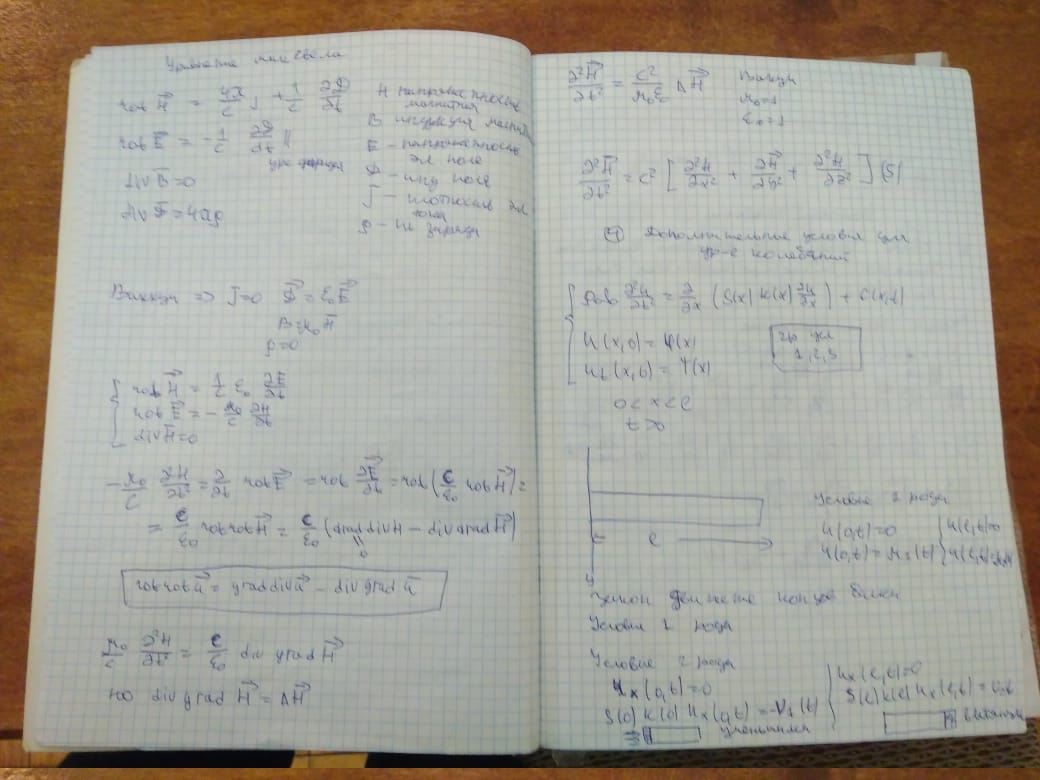 Уравнения максвелла
rot H⃗ = 4π/c j + 1/c ∂D/∂t
rot E⃗ = -1/c ∂D/∂t
div B = 0
div D⃗ = 4πρ
H напряженность
магнитная
B индукция магнит
E - напряженность
эл поле
D - инд поля
J - плотность эл
тока
ρ - пл заряда
Вакуум => J=0 D⃗ = ε₀E⃗
B = μ₀H⃗
ρ=0
rot H⃗ = 1/c ε₀ ∂E/∂t
rot E⃗ = - μ₀/c ∂H/∂t
div H⃗ = 0
-μ₀/c ∂²H/∂t² = ∂/∂t rot E⃗ = rot ∂E⃗/∂t = rot (c/ε₀ rot H⃗) =
= c/ε₀ rot rot H⃗ = c/ε₀ (grad div H - div grad H⃗)
0
rot rot u⃗ = grad div u⃗ - div grad u⃗
μ₀/c ∂²H/∂t² = c/ε₀ div grad H⃗
но div grad H⃗ = ΔH⃗
∂²H⃗/∂t² = c²/μ₀ε₀ ΔH⃗ Вакуум
μ₀=1
ε₀=1
∂²H⃗/∂t² = c² [∂²H/∂x² + ∂H⃗/∂y² + ∂²H/∂z²] (5)
④ Дополнительные условия для
ур-е колебаний
∂²u/∂t² = ∂/∂x (S(x) k(x) ∂u/∂x) +
u(x,0) = φ(x)
u_t(x,0) = Ψ(x)
гр усл
1,2,3
0<x<l
t>0
l
Условие 1 рода
u(0,t)=0
u(0,t) = μ₁(t)
u(l,t)=0
Закон движения концов балки
Условия 2 рода
Условие 2 рода
u_x(0,t)=0
S(0) k(0) u_x(0,t) = -ν₁(t)
u_x(l,t)=0
S(l) k(l) u_x(l,t) =